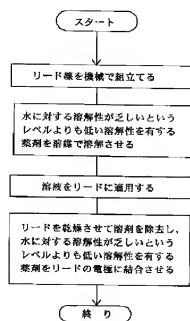 スタート
リード線を機械で組立てる
水に対する溶解性が乏しいという
レベルよりも低い溶解性を有する
薬剤を溶媒で溶解させる
溶液をリードに適用する
リードを乾燥させて溶剤を除去し、
水に対する溶解性が乏しいという
レベルよりも低い溶解性を有する
薬剤をリードの電極に結合させる
終り